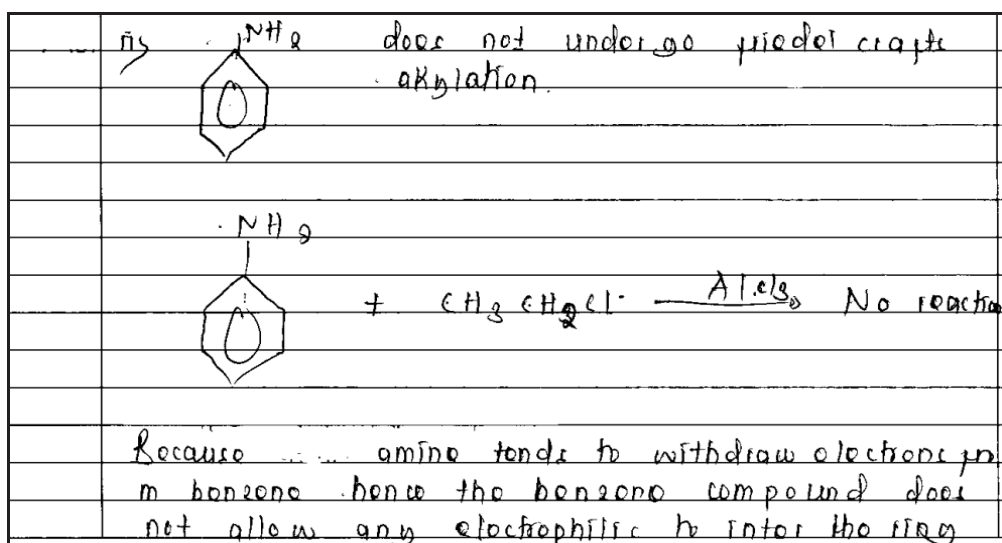 ii>
NH2 does not undergo friedel crafts
alkylation.
NH2
+ CH3 CH2Cl AlCl3 No reaction
Because ...... amino tends to withdraw electrons fro
m benzene hence the benzene compound does
not allow any electrophilic to inter the ring